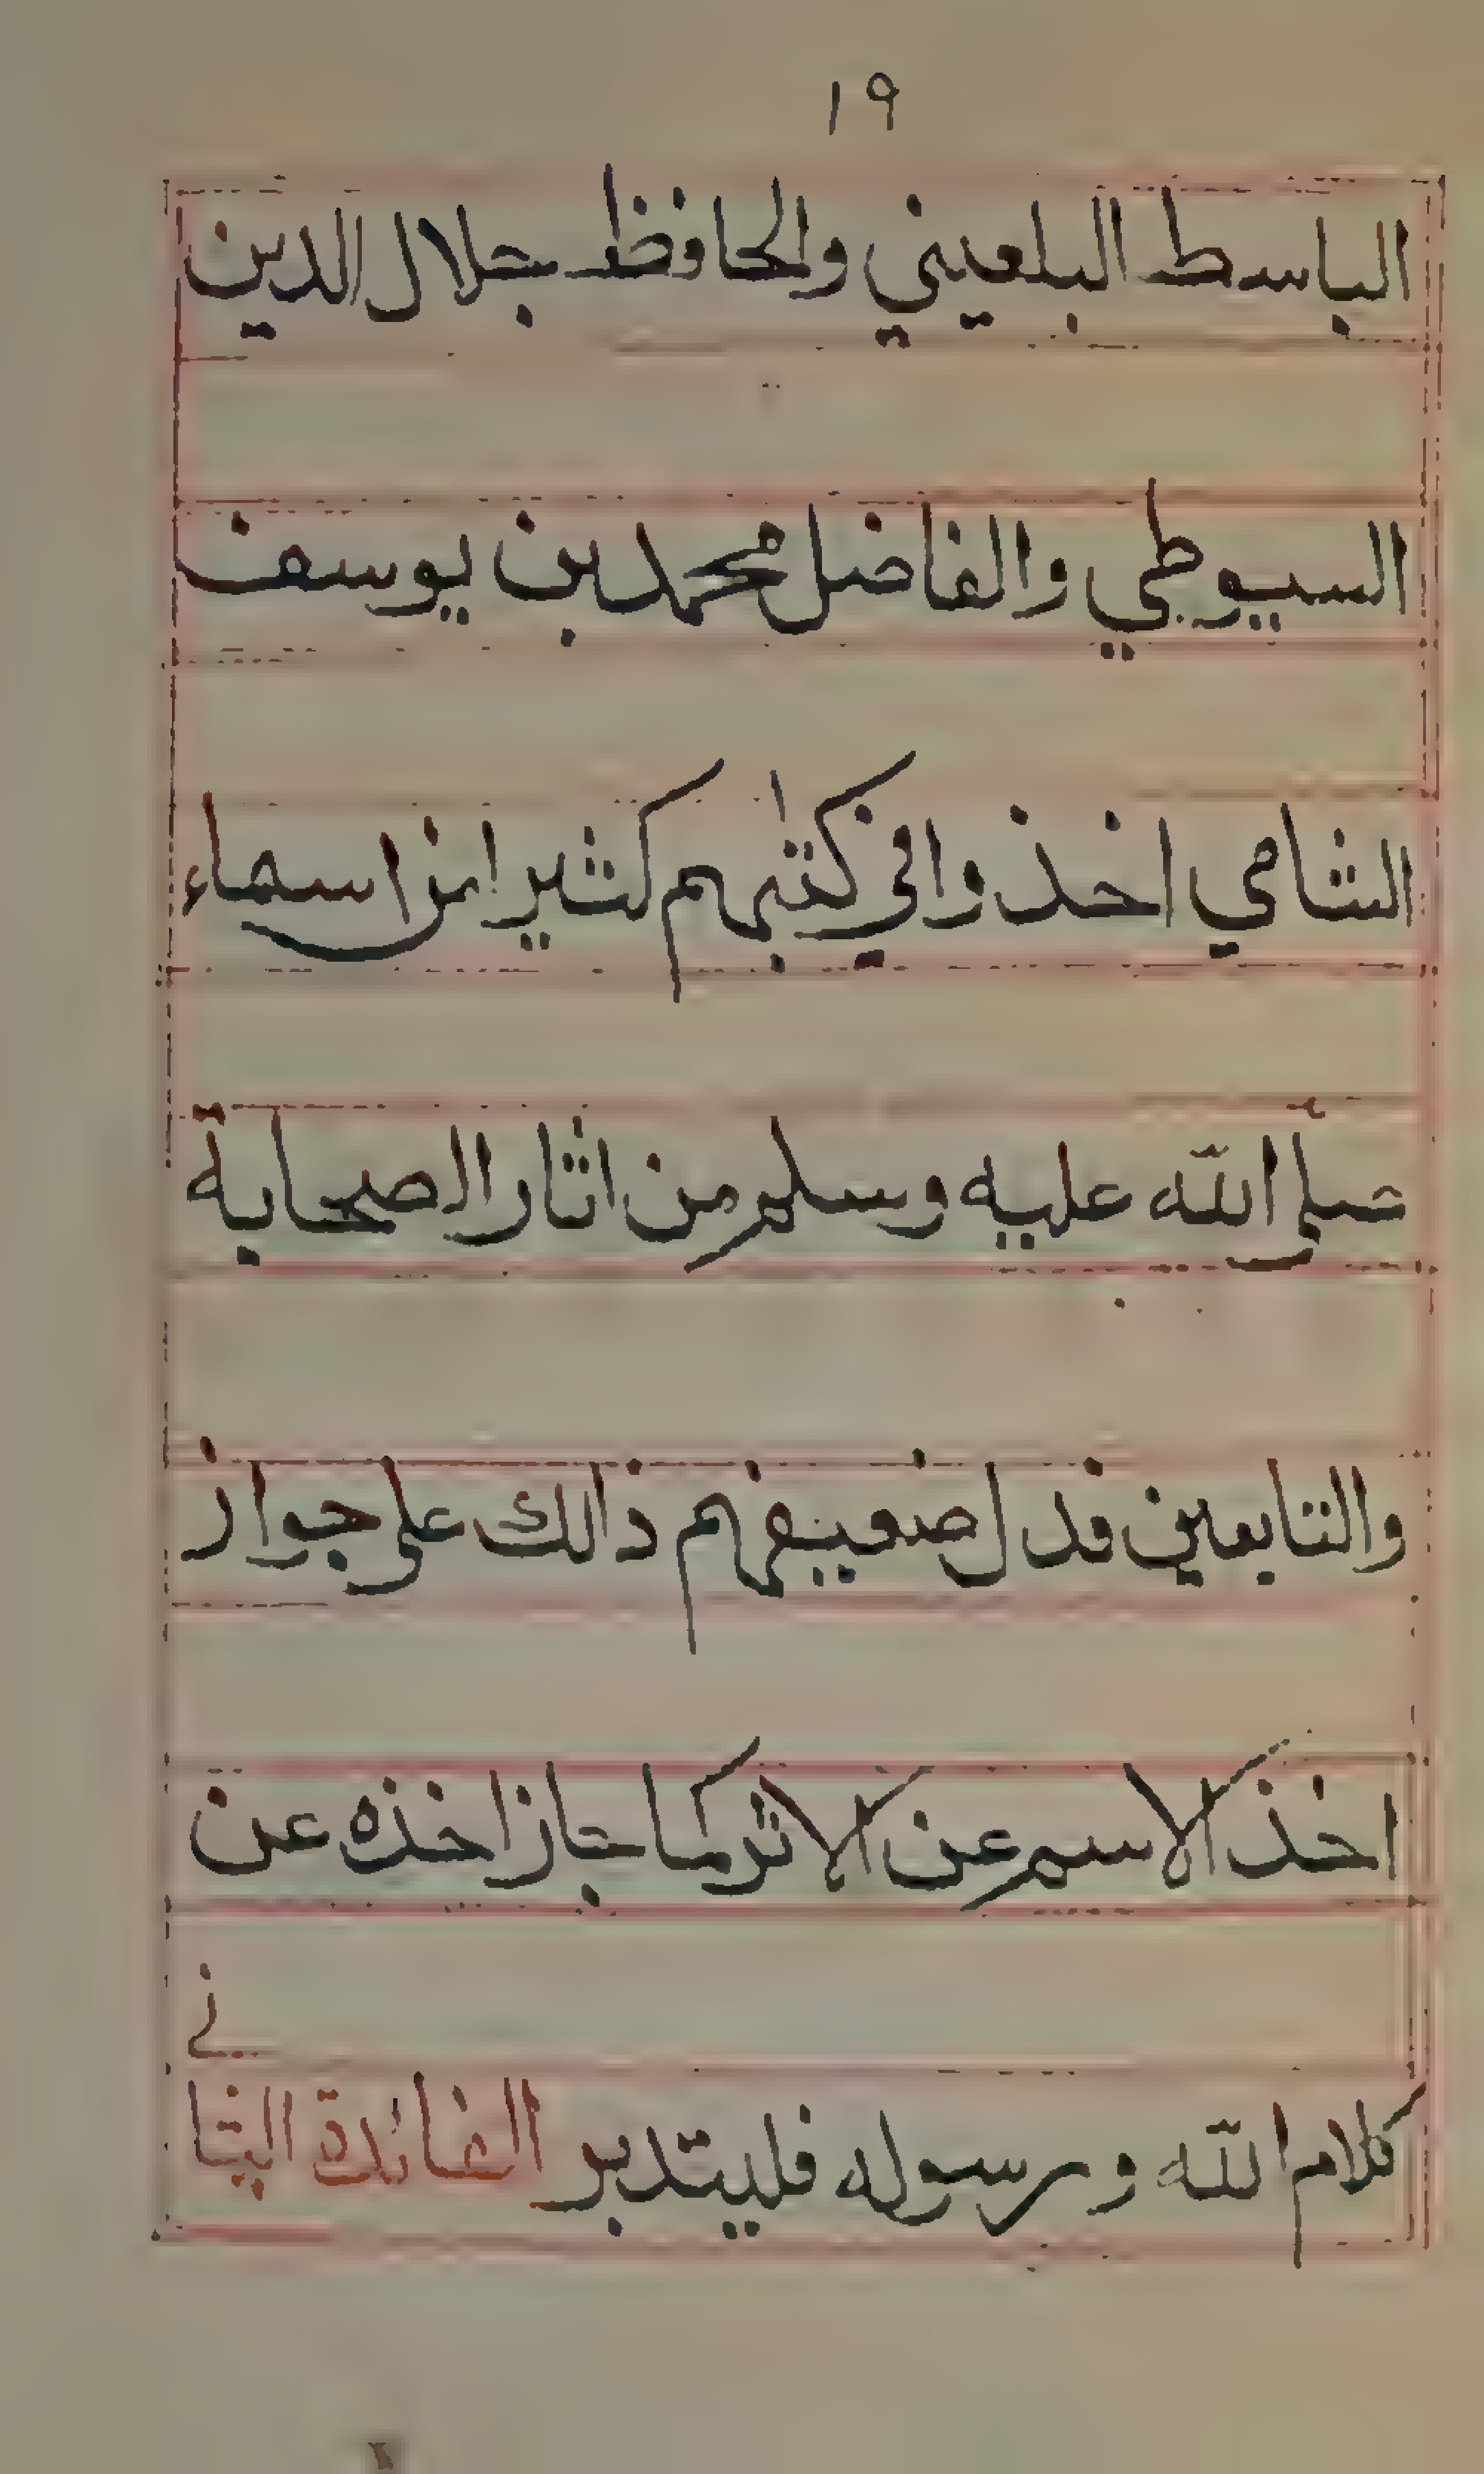 ١٩
الباسط البلعيني والحافظ جلال الدين
السيوطي والفاضل محمد بن يوسف
الشامي اخذوا في كتبهم كثيرا من اسماء
صلّى اللّه عليه وسلم من اثار الصحابة
والتابعين فدل صعيفهم ذالك على جواز
اخذ الاسم عن الاثر كما جاز اخذه عن
كلام اللّه ورسوله فليتدبر الفائدة الثانى